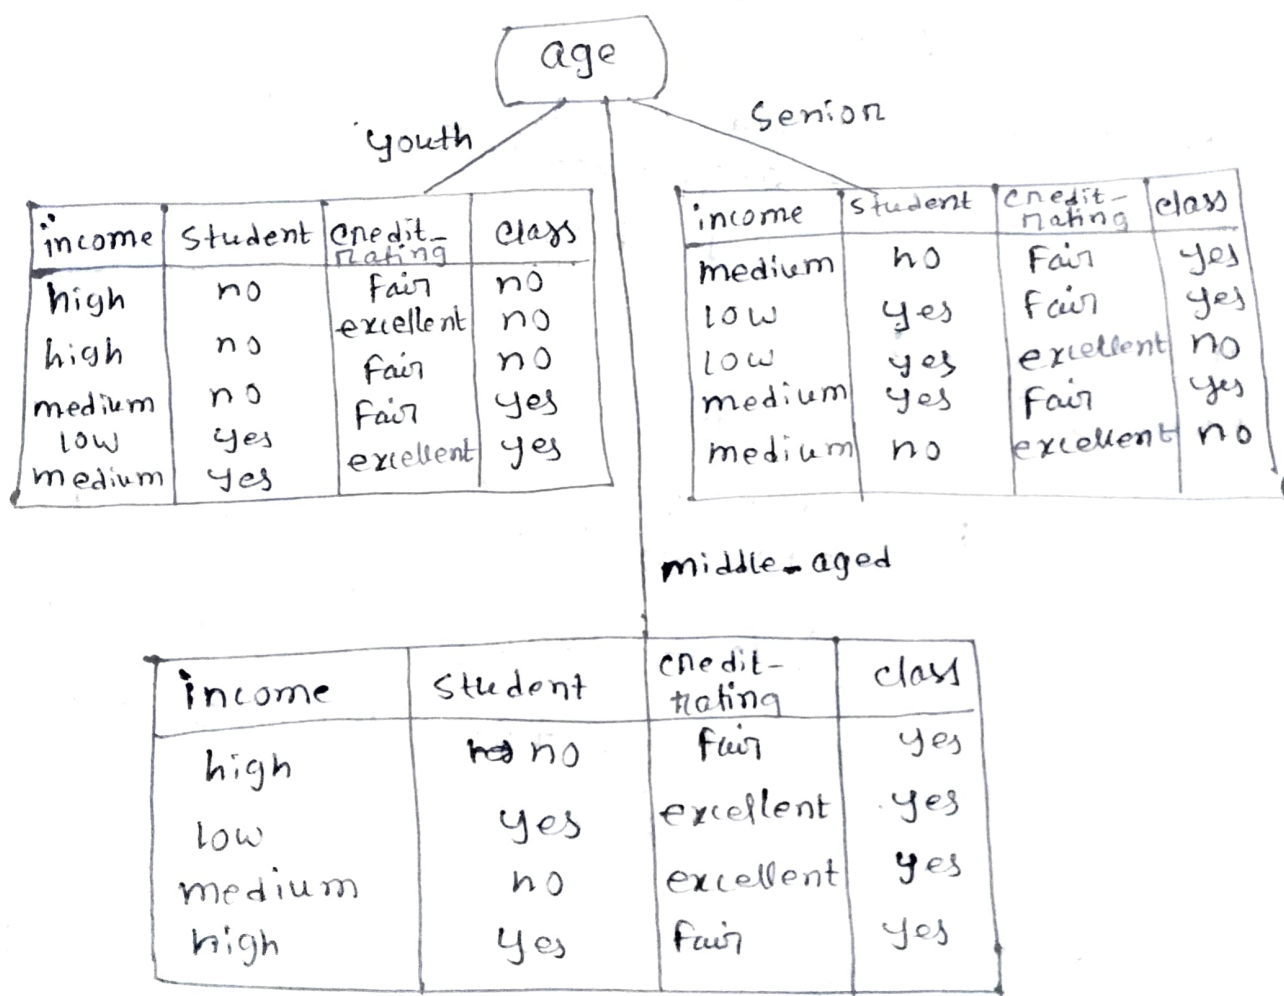 age
youth
Senior
income student credit_rating class
high no fair no
high no excellent no
medium no fair no
low yes fair yes
medium yes excellent yes
income student credit_rating class
medium no fair yes
low yes fair yes
low yes excellent no
medium yes fair yes
medium no excellent no
middle_aged
income student credit_rating class
high no fair yes
low yes excellent yes
medium no excellent yes
high yes fair yes